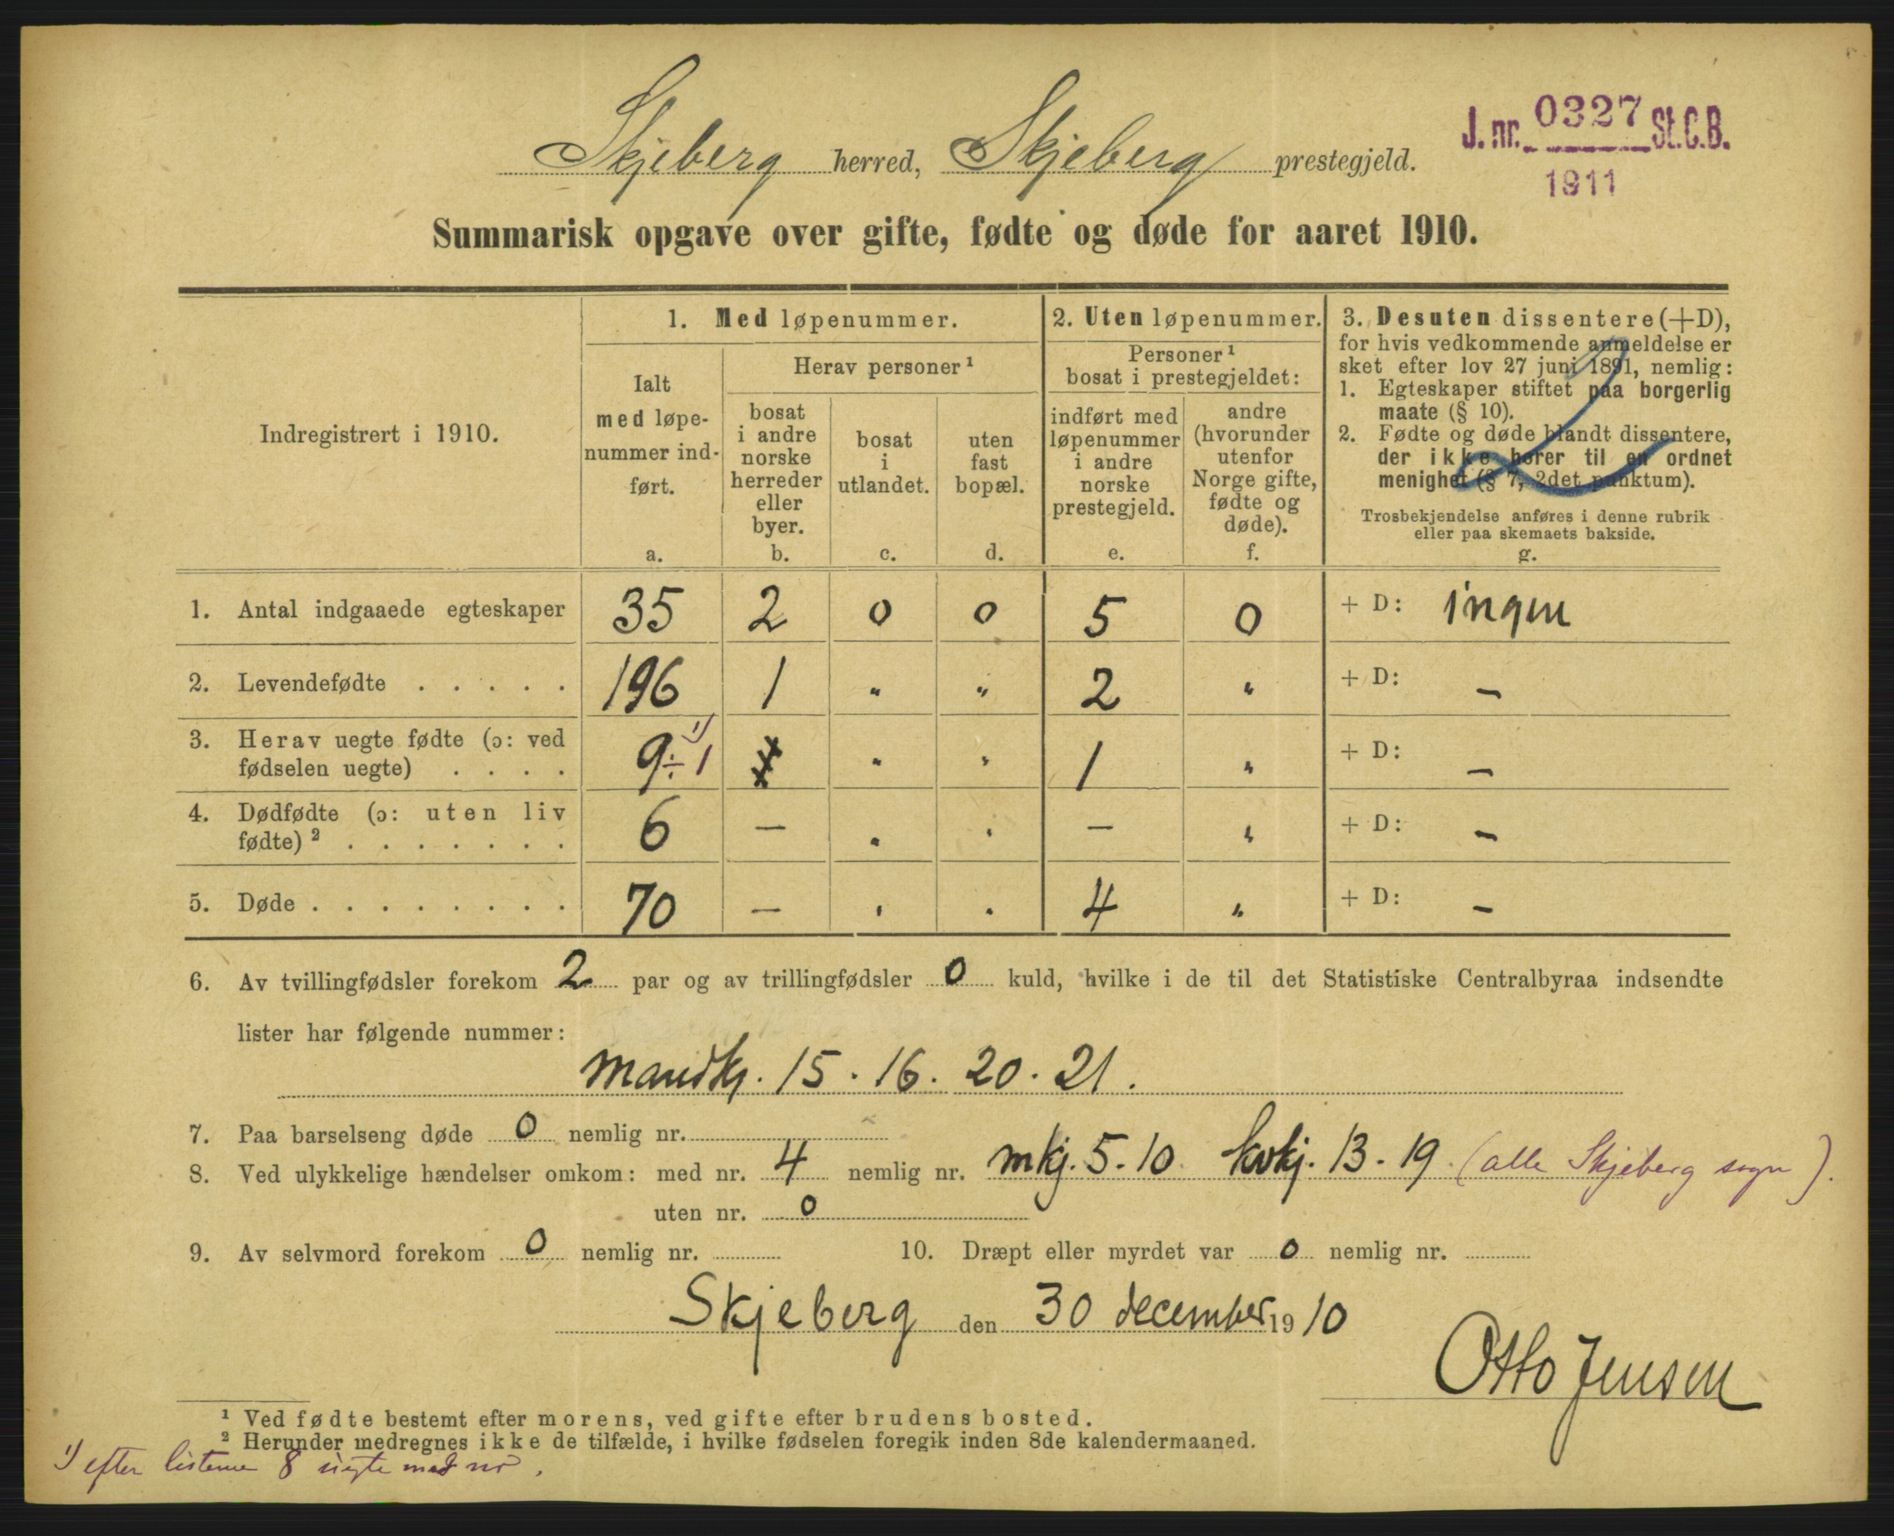 Skjeberg herred, Skjeberg prestegjeld.
J. nr. 0327 St.C.B.
1911
Summarisk opgave over gifte, fødte og døde for aaret 1910.
Indregistrert i 1910.
1. Med løpenummer.
Ialt
med løpe-
nummer ind-
ført.
a.
Herav personer ¹
bosat
i andre
norske
herreder
eller
byer.
b.
bosat
i
utlandet.
c.
uten
fast
bopæl.
d.
2. Uten løpenummer.
Personer ¹
bosat i prestegjeldet:
indført med
løpenummer
i andre
norske
prestegjeld.
e.
andre
(hvorunder
utenfor
Norge gifte,
fødte og
døde).
f.
3. Desuten dissentere (+D),
for hvis vedkommende anmeldelse er
sket efter lov 27 juni 1891, nemlig:
1. Egteskaper stiftet paa borgerlig
maate (§ 10).
2. Fødte og døde blandt dissentere,
der ikke hører til en ordnet
menighet (§ 7, 2det punktum).
Trosbekjendelse anføres i denne rubrik
eller paa skemaets bakside.
g.
1. Antal indgaaede egteskaper 35 2 0 0 5 0 + D: ingen
2. Levendefødte . . . . . 196 1 " " 2 " + D: —
3. Herav uegte fødte (ɔ: ved
fødselen uegte) . . . . 9 ÷ 1 ¹) " " 1 " + D: —
4. Dødfødte (ɔ: uten liv
fødte) ² . . . . . . . 6 — " " — " + D: —
5. Døde . . . . . . . . 70 — " " 4 " + D: —
6. Av tvillingfødsler forekom 2 par og av trillingfødsler 0 kuld, hvilke i de til det Statistiske Centralbyraa indsendte
lister har følgende nummer:
Mandkj. 15 . 16 . 20 . 21 .
7. Paa barselseng døde 0 nemlig nr.
8. Ved ulykkelige hændelser omkom: med nr. 4 nemlig nr. mkj. 5 . 10 kvkj. 13 . 19 (alle Skjeberg sogn).
uten nr. 0
9. Av selvmord forekom 0 nemlig nr. 10. Dræpt eller myrdet var 0 nemlig nr.
Skjeberg den 30 december 1910
Otto Jensen
¹ Ved fødte bestemt efter morens, ved gifte efter brudens bosted.
² Herunder medregnes ikke de tilfælde, i hvilke fødselen foregik inden 8de kalendermaaned.
¹) efter listerne 8 uegte med nr.